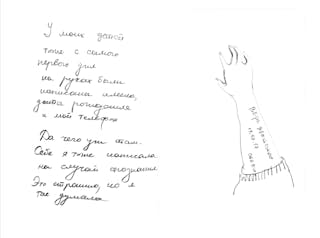 У моих детей
тоже с самого
первого дня
на руках были
написаны имена,
дата рождения
и мой телефон
Да чего уж там.
Себе я тоже написала
на случай опознания
Это страшно, но я
так думала